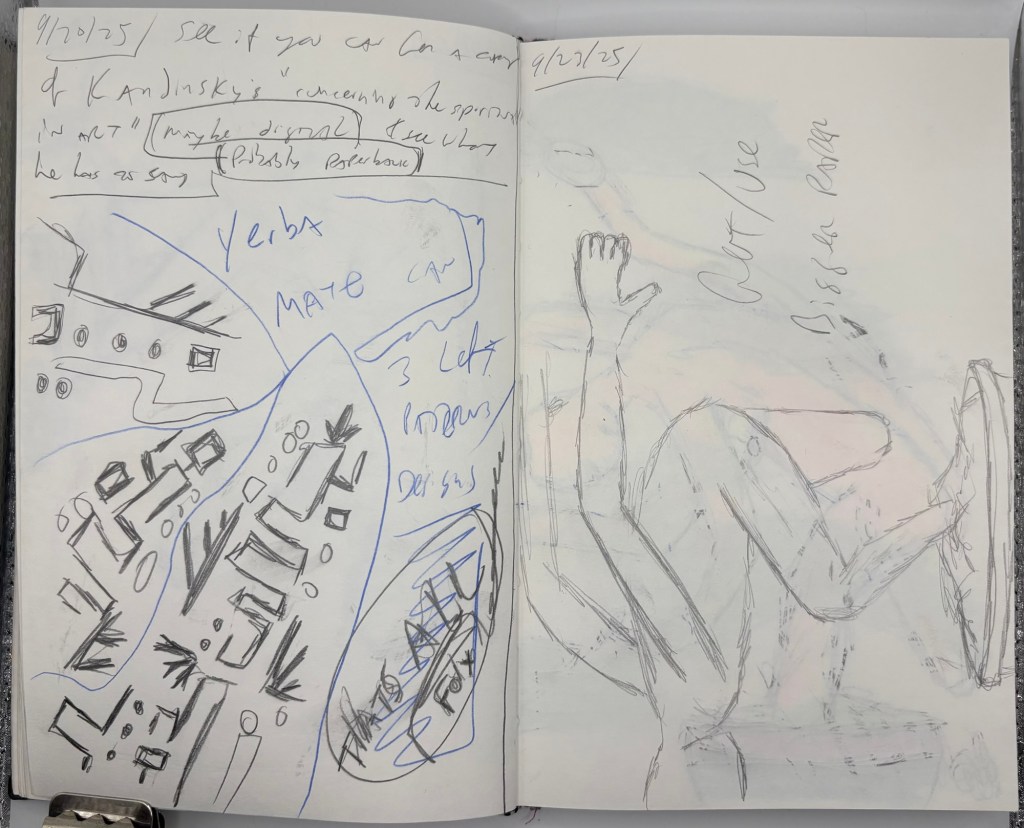 9/20/25/ See if you can
of Kandinsky's "concerning the spiritual
in ART" maybe digital & see what
Probably paperback
he has to say
Yerba
MATE CAN
3 Left
Designs
THATS ALL
Folx
9/23/25/
Get/use
Bigger Paper